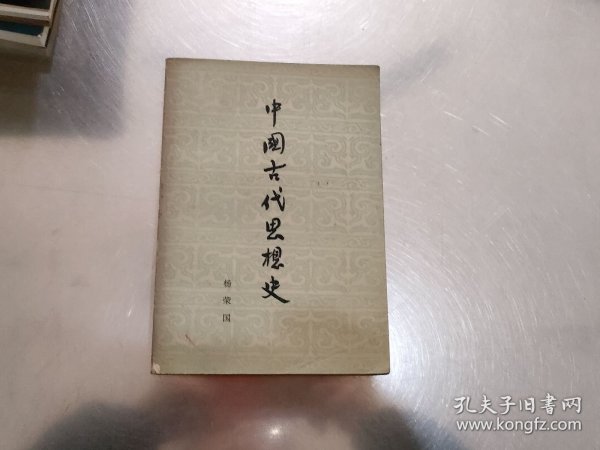 中國古代思想史
杨荣国
孔夫子旧书网
www.kongfz.com